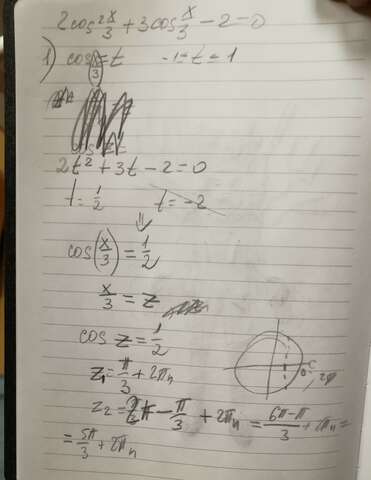 2cos² x/3 + 3cos x/3 - 2 = 0
1) cos x/3 = t   -1 ≤ t ≤ 1
2t² + 3t - 2 = 0
t = 1/2   t = -2
⇓
cos(x/3) = 1/2
x/3 = z
cos z = 1/2
z₁ = π/3 + 2πn
0 2π
z₂ = 2π - π/3 + 2πn = (6π-π)/3 + 2πn =
= 5π/3 + 2πn